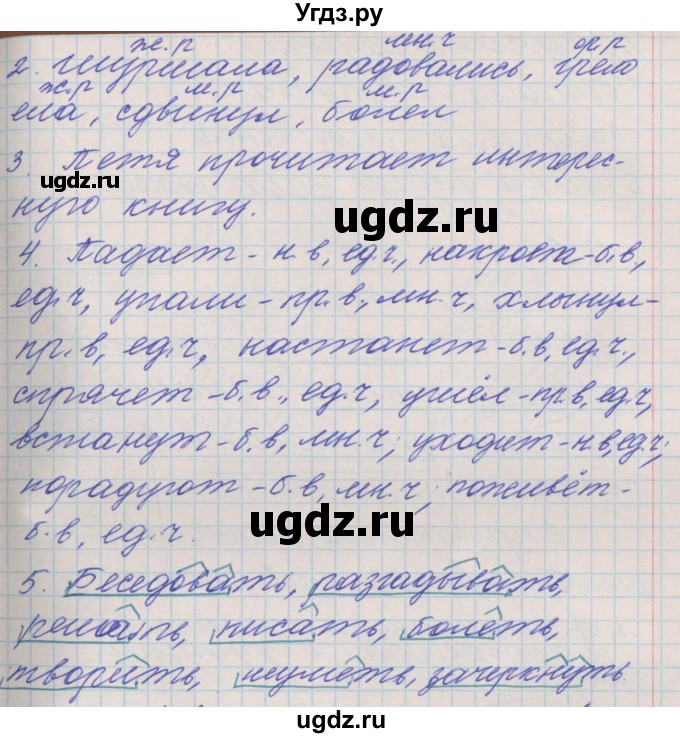 Угдз.ру
ж.р мн.ч ср.р
2. Шуршала, радовались, грело
ж.р м.р м.р
ела, сдвинул, болел
3. Петя прочитает интерес-
ugdz.ru
ugdz.ru
ную книгу.
4. Падает - н.в, ед.ч., накроет - б.в.,
ед.ч, упали - пр.в., мн.ч, хлынул -
пр.в, ед.ч, настанет - б.в, ед.ч.,
спрячет - б.в., ед.ч, ушёл - пр.в, ед.ч,
встанут - б.в, мн.ч; уходит - н.в, ед.ч;
порадуют - б.в, мн.ч; поживёт -
ugdz.ru
б.в, ед.ч.
5. Беседовать, разгадывать,
решать, писать, болеть,
творить, шуметь, зачеркнуть.
ugdz.ru